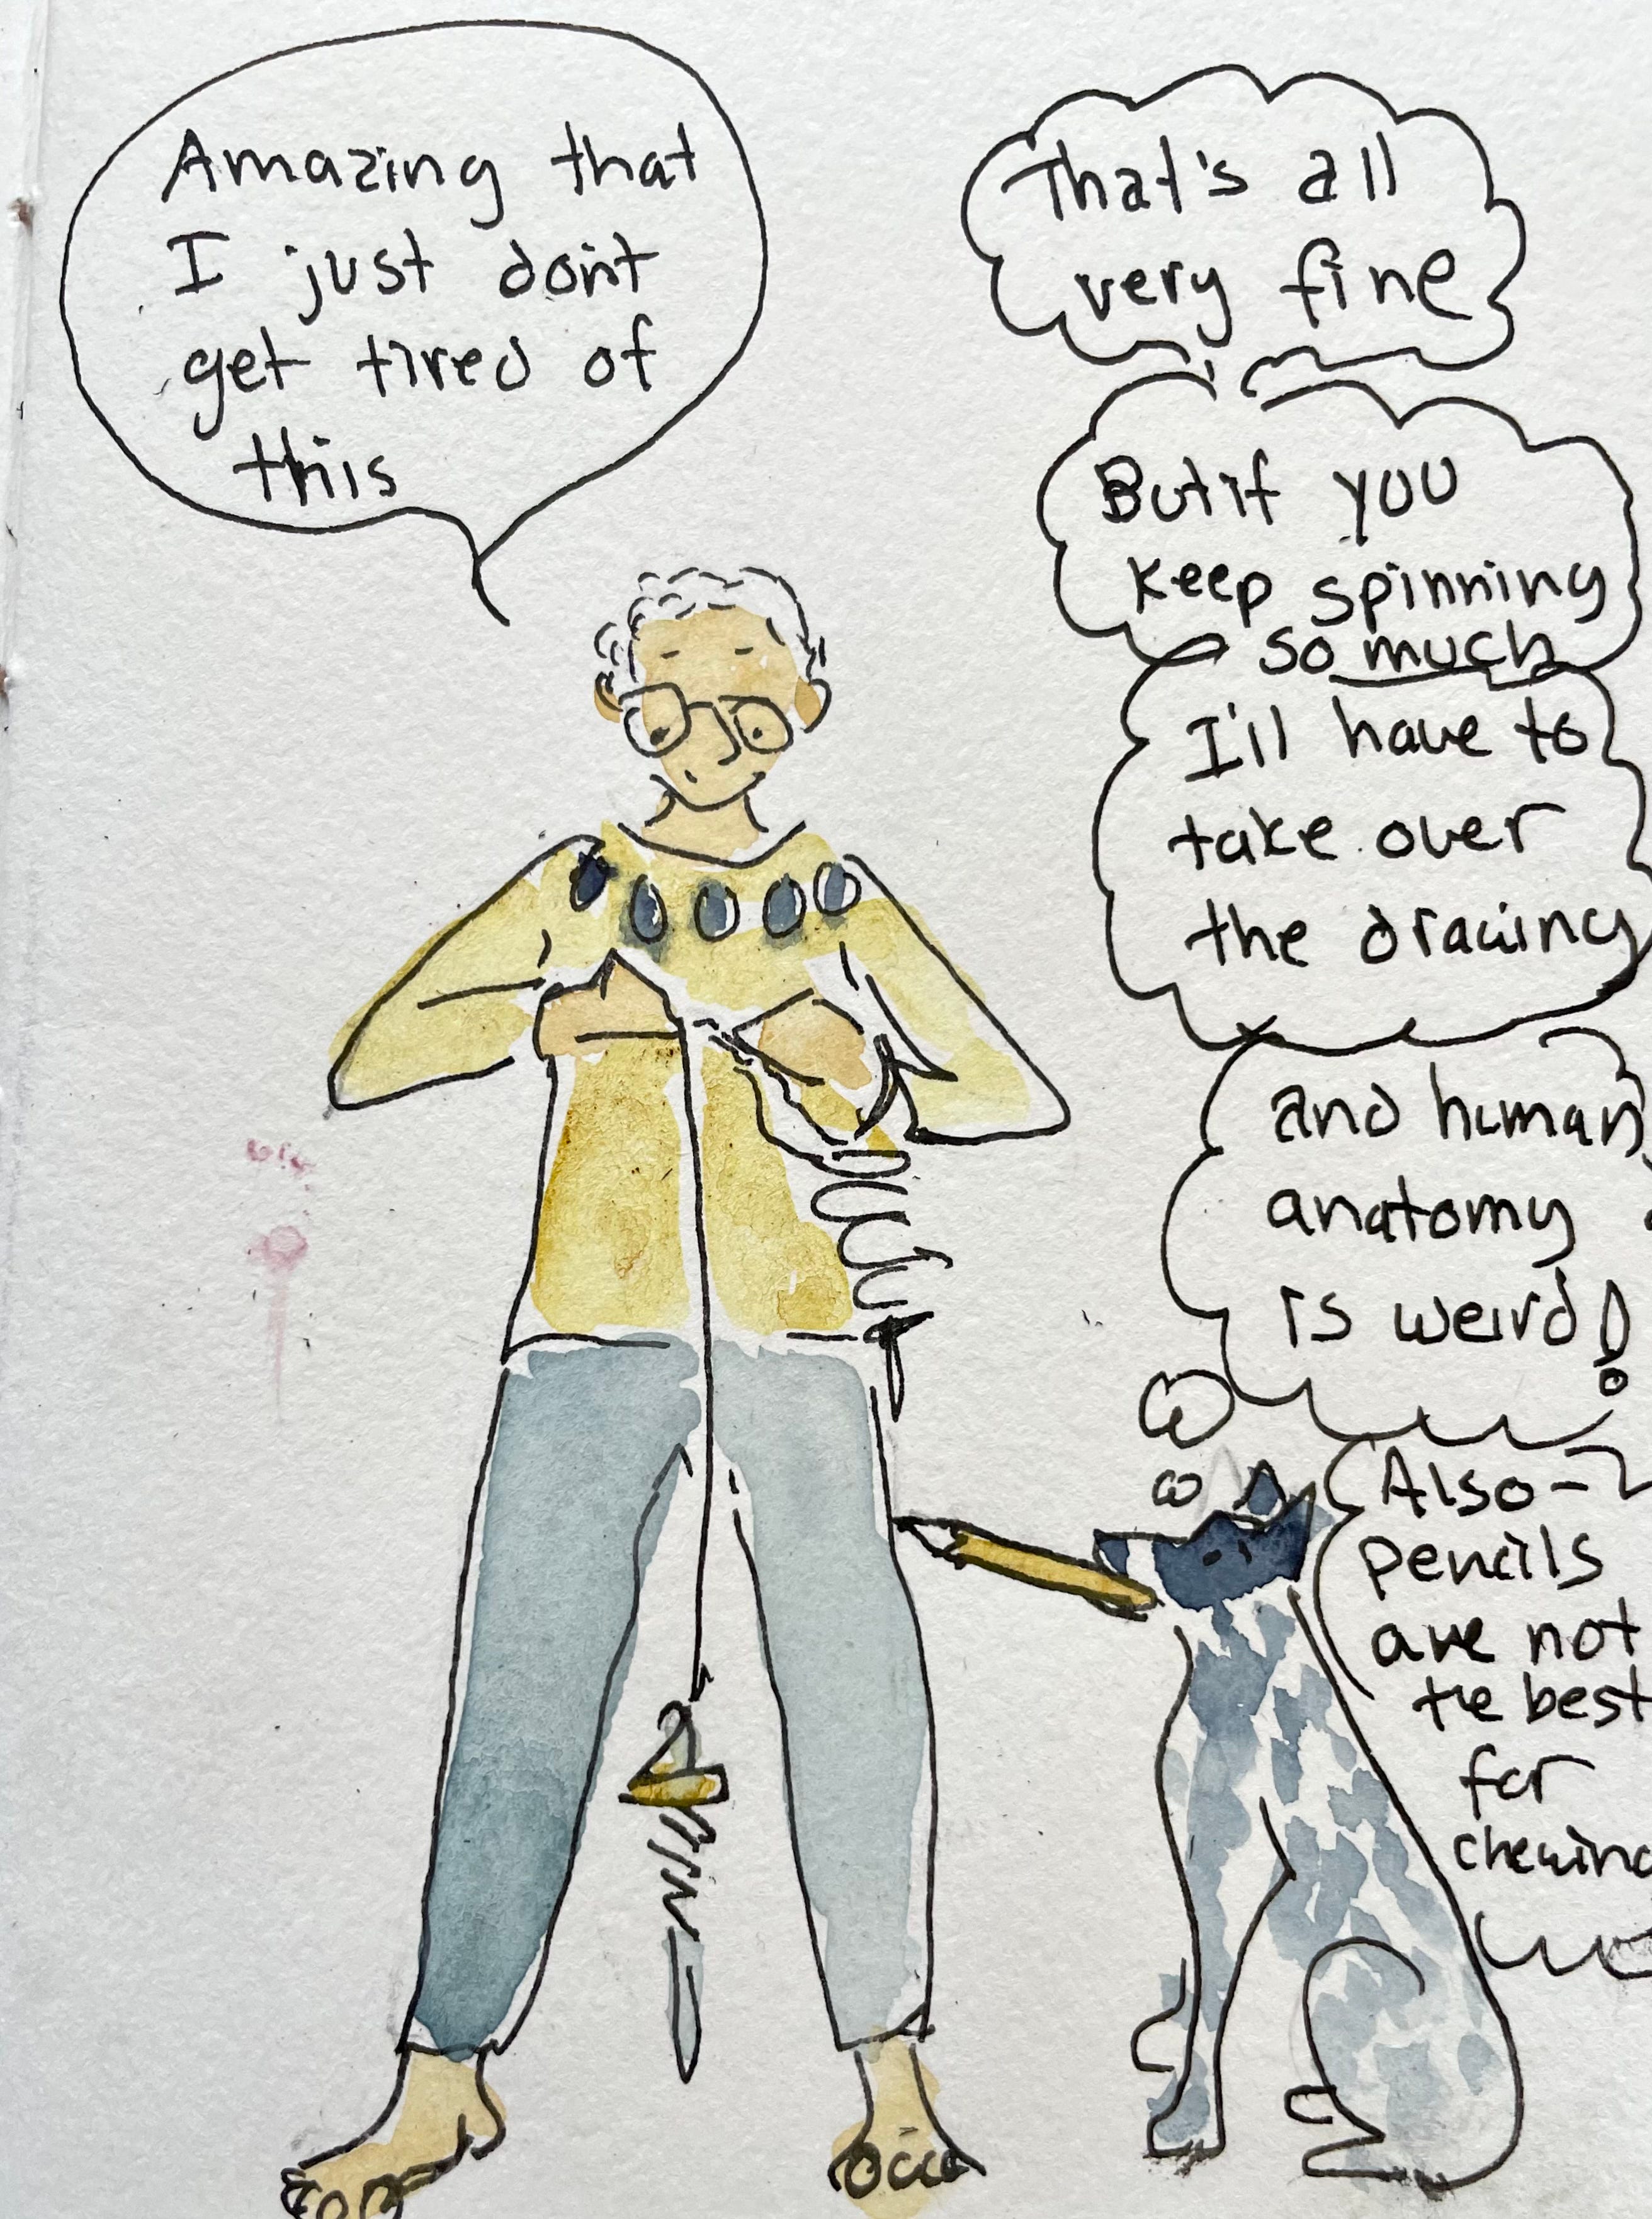 Amazing that
I just don't
get tired of
this
That's all
very fine
But if you
keep spinning
so much
I'll have to
take over
the drawing
and human
anatomy
is weird!
Also-
pencils
are not
the best
for
chewing